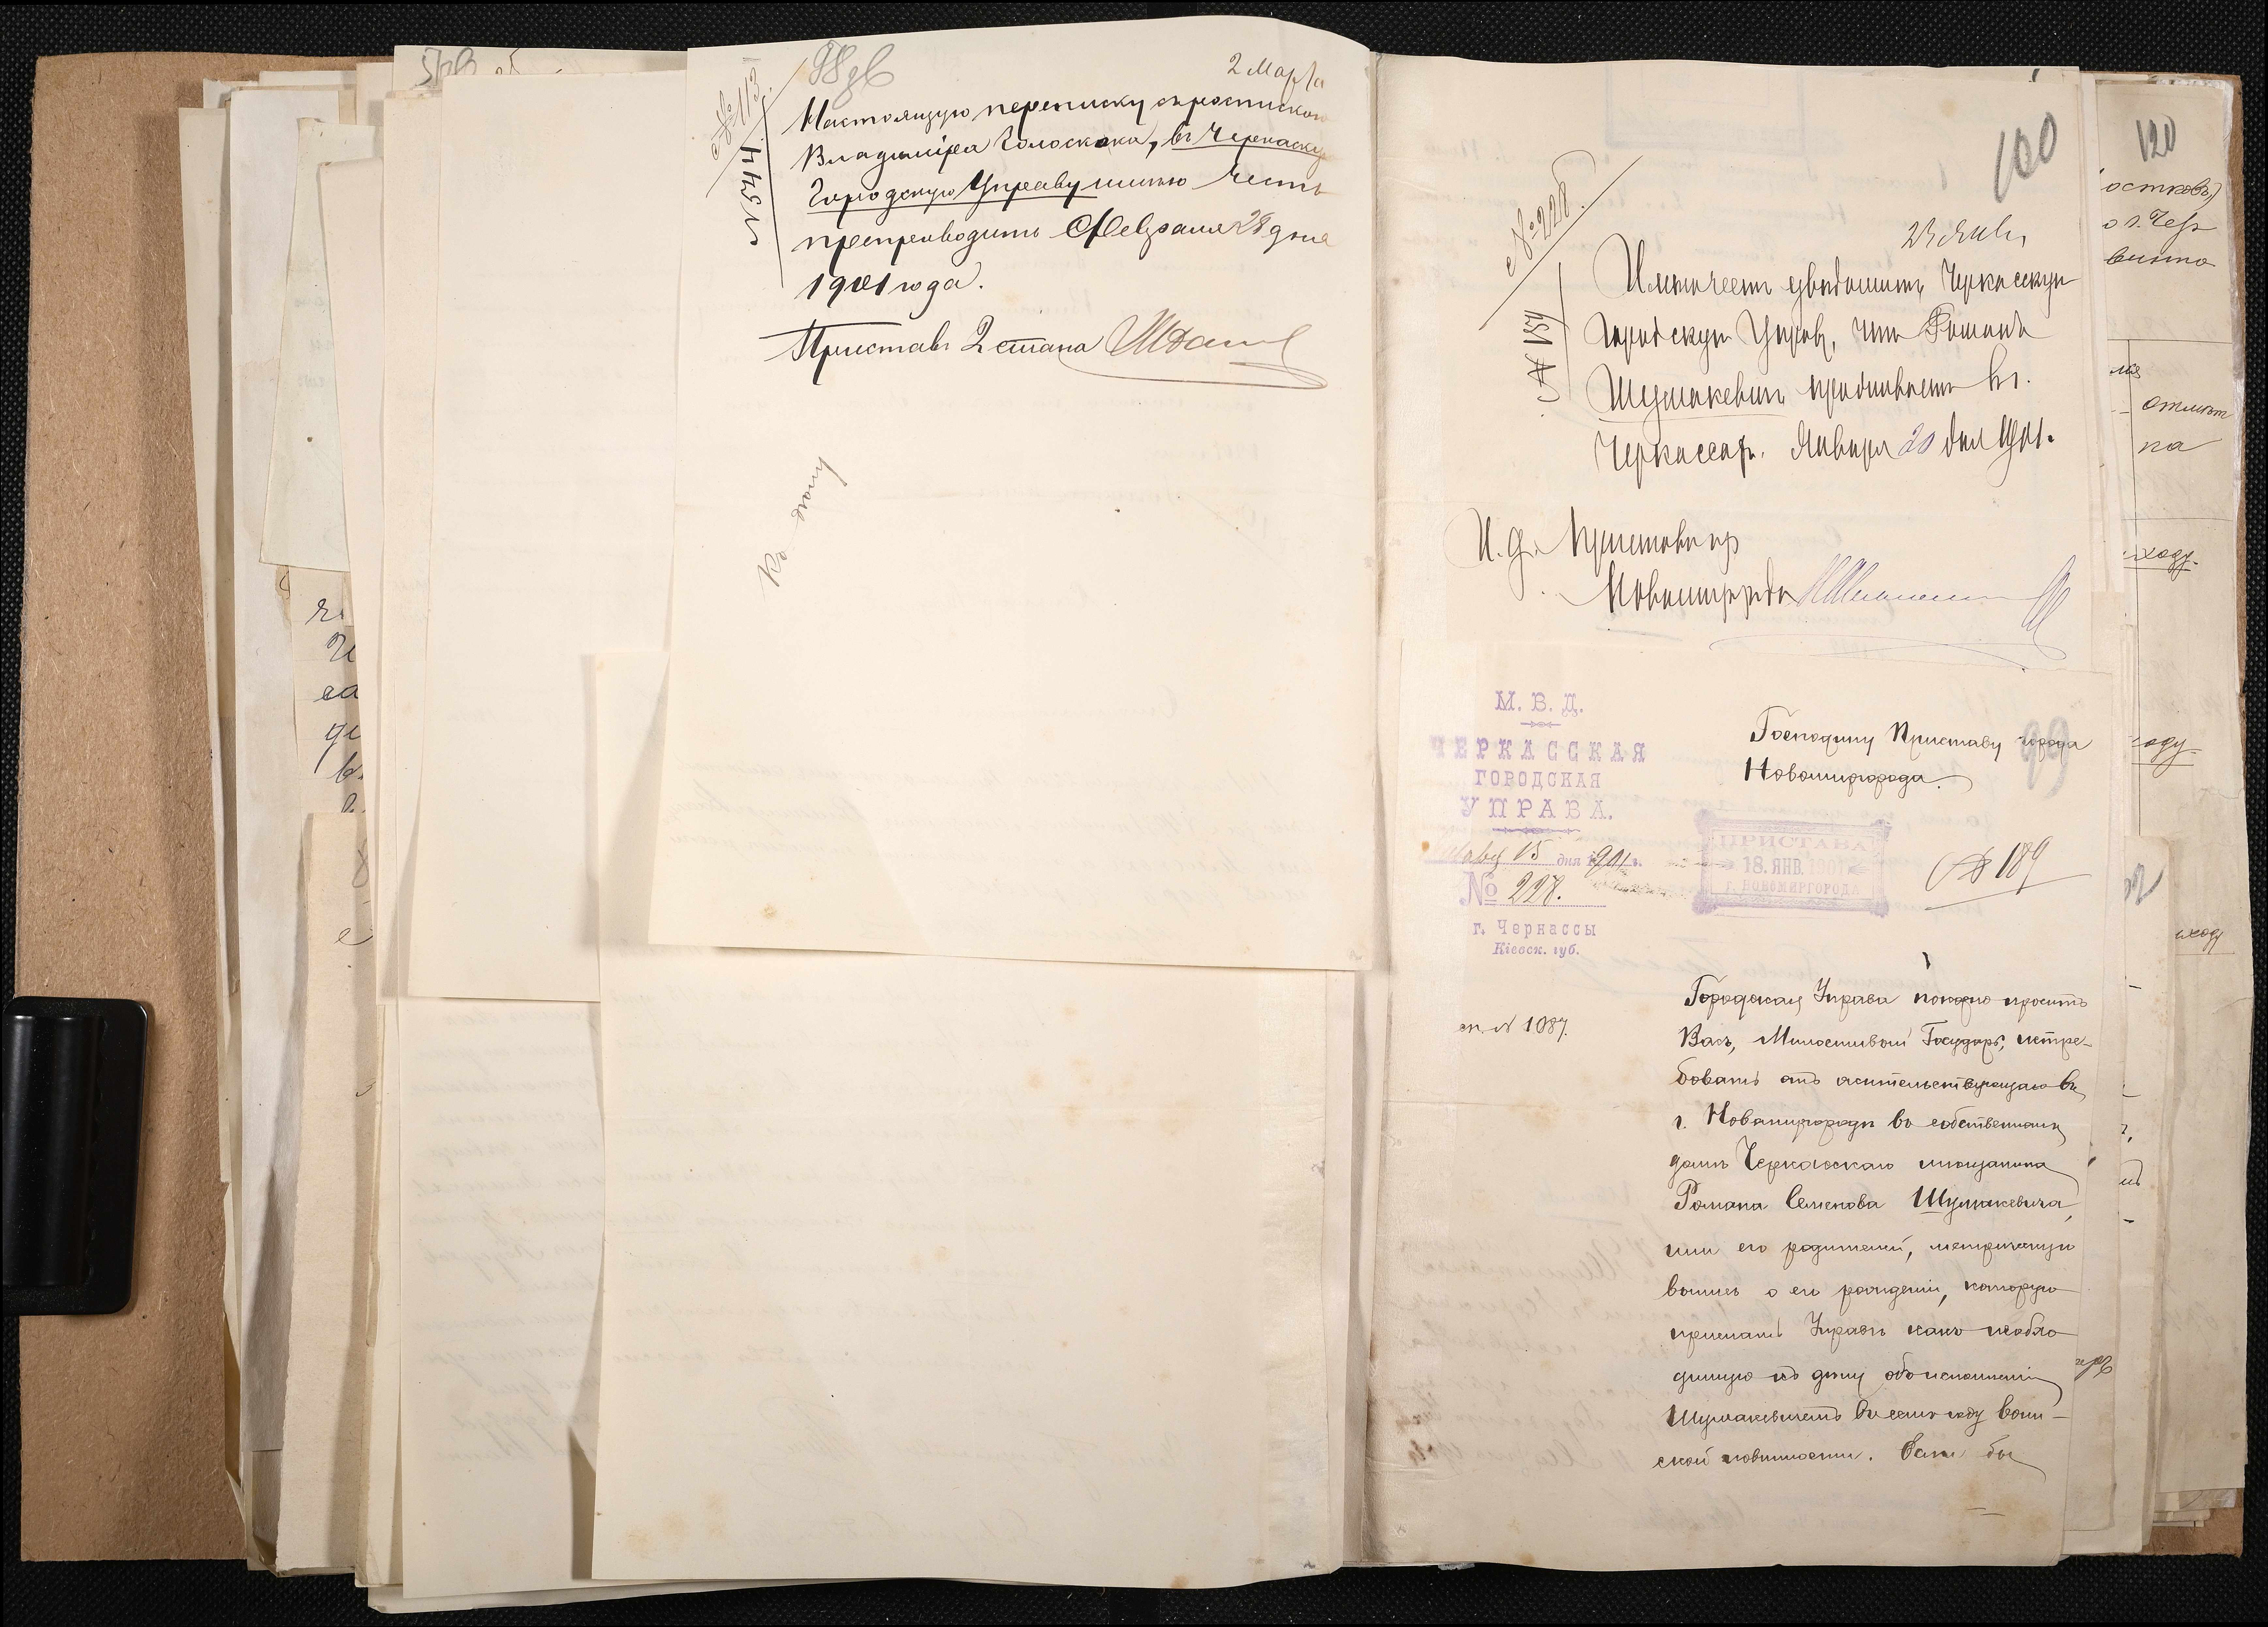 98 об
2 Марта
№ 113
№ 1344
Настоящую переписку съ роспиской
Владиміра Голоскока, въ Черкаскую
Городскую Управу имѣю честь
препроводить Февраля 28 дня
1901 года.
Приставъ 2 стана
Къ дѣлу
100
№ 228
№ 189
23 Янв.
Имѣю честь увѣдомить Черкасскую
Городскую Управу, что Романъ
Шумакевичъ проживаетъ въ г.
Черкассахъ. Января 20 дня 1901.
И. д. Пристава гор.
Новомиргорода
М. В. Д.
ЧЕРКАССКАЯ
ГОРОДСКАЯ
УПРАВА.
Янв 15 дня 1901 г.
№ 228.
г. Черкассы
Кіевск. губ.
Господину Приставу города
Новомиргорода.
99
ПРИСТАВА
18. ЯНВ. 1901
Г. НОВОМИРГОРОДА
№ 189
сп. № 1087.
Городская Управа покорно проситъ
Васъ, Милостивый Государь, истре-
бовать отъ жительствующаго въ
г. Новомиргородѣ въ собственномъ
домѣ Черкасскаго мѣщанина
Романа Семенова Шумакевича,
или его родителей, метрическую
выпись о его рожденіи, которую
прислать Управѣ какъ необхо-
димую къ дѣлу объ исполненіи
Шумакевичемъ въ семъ году воин-
ской повинности. Если бы
120
отмѣт
ка